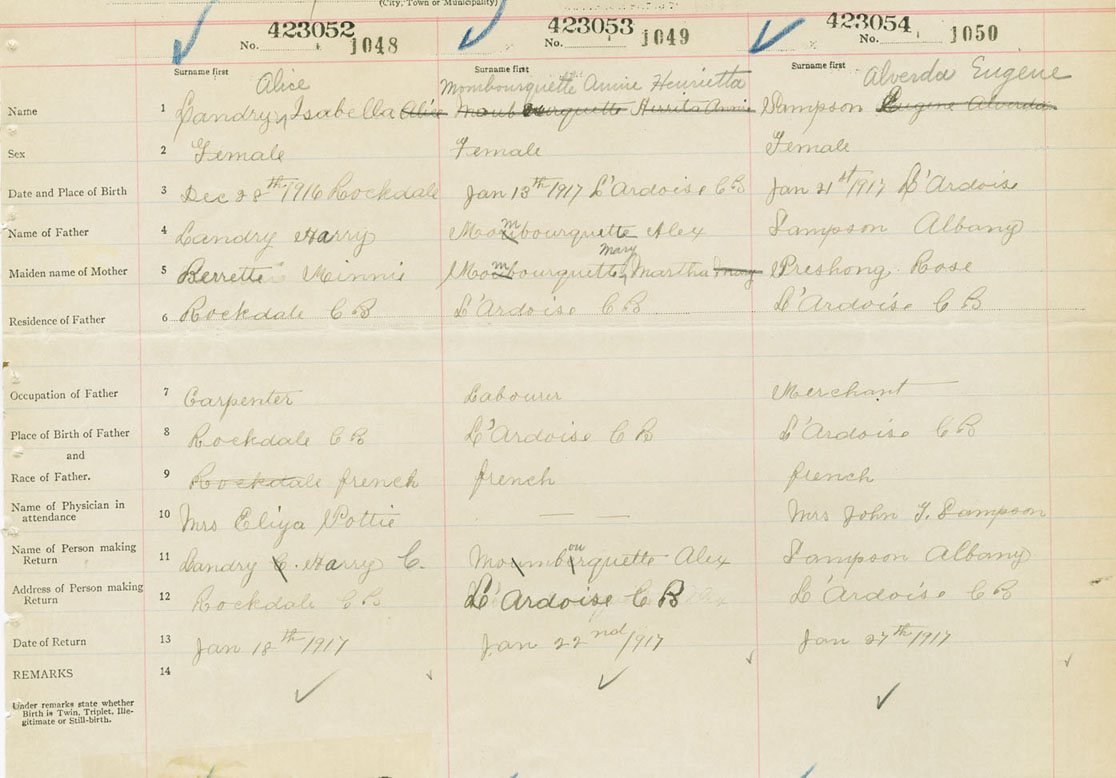 (City, Town or Municipality)
423052 423053 423054
No. 1048 No. 1049 No. 1050
Surname first Surname first Surname first
Alice Mombourquette Annie Henrietta Alverda Eugene
Name 1 Landry Isabella Alice Sampson Eugene Alverda
Sex 2 Female Female Female
Date and Place of Birth 3 Dec 28th/1916 Rockdale Jan 13th/1917 L'Ardoise C B Jan 21st/1917 L'Ardoise
Name of Father 4 Landry Harry Mombourquette Alex Sampson Albany
Mary
Maiden name of Mother 5 Berrette Minnie Mombourquette Martha Mary Preshong Rose
Residence of Father 6 Rockdale C B L'Ardoise C B L'Ardoise C B
Occupation of Father 7 Carpenter Labourer Merchant
Place of Birth of Father 8 Rockdale C B L'Ardoise C B L'Ardoise C B
and
Race of Father. 9 Rockdale french french french
Name of Physician in
attendance 10 Mrs Eliya Pottie — — Mrs John T. Sampson
Name of Person making
Return 11 Landry C. Harry C. Mombourquette Alex Sampson Albany
Address of Person making
Return 12 Rockdale C B L'Ardoise C B L'Ardoise C B
Date of Return 13 Jan 18th/1917 Jan 22nd/1917 Jan 27th/1917
REMARKS 14
Under remarks state whether
Birth is Twin, Triplet, Ille-
gitimate or Still-birth.